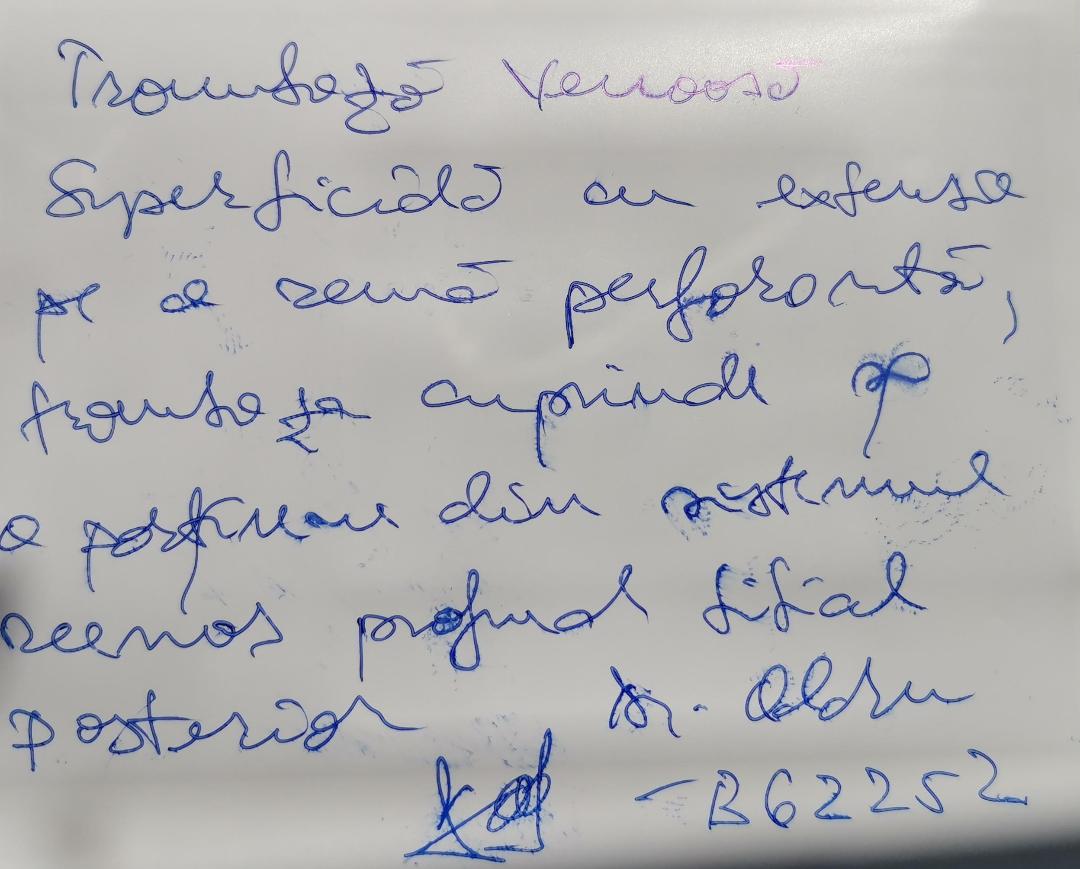 Tromboză Venoasă
Superficială cu extensie
pe o venă perforantă,
tromboza cuprinde și
o porțiune din sistemul
venos profund tibial
posterior Dr.
B62252